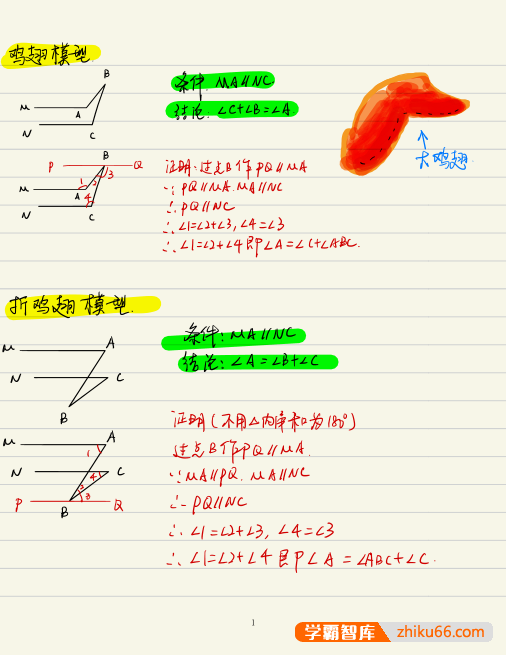 鸡翅模型
条件 MA∥NC
结论:∠C+∠B=∠A
B
M
A
N
C
大鸡翅
P
B
Q
1
2
3
M
A
4
N
C
证明:过点B作PQ∥MA
∵PQ∥MA.MA∥NC
∴PQ∥NC
∴∠1=∠2+∠3,∠4=∠3
∴∠1=∠2+∠4即∠A=∠C+∠ABC.
折鸡翅模型.
条件:MA∥NC
结论:∠A=∠B+∠C
M
A
N
C
B
M
A
1
N
C
4
2
3
P
B
Q
证明(不用△内角和为180°)
过点B作PQ∥MA.
∵MA∥PQ.MA∥NC
∴PQ∥NC
∴∠1=∠2+∠3,∠4=∠3
∴∠1=∠2+∠4即∠A=∠ABC+∠C.
1
学霸智库 zhiku66.com